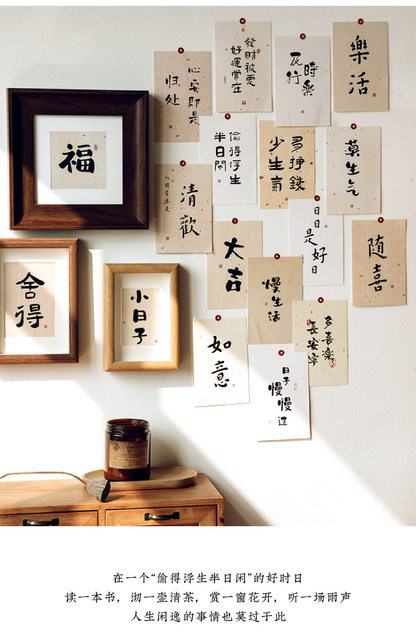 心安即是
归处
發財被愛
好運常在
及時
行樂
樂活
福
偷得浮生
半日閑
多挣錢
少生氣
莫生气
人間有味是
清歡
日日
是好日
随喜
舍得
小日子
大吉
慢生活
多喜樂
長安寧
如意
日子
慢慢过
在一个“偷得浮生半日闲”的好时日
读一本书，沏一壶清茶，赏一窗花开，听一场雨声
人生闲逸的事情也莫过于此